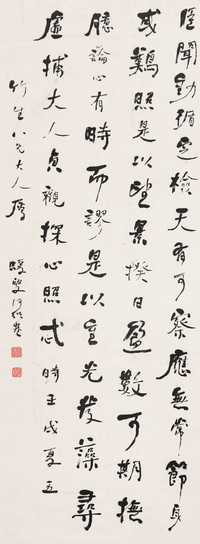 臣聞動循定檢天有可察應無常節身
或難照是以望景揆日盈數可期撫
臆論心有時而謬是以重光發藻尋
虛捕大人貞觀探心照忒時壬戌夏五
竹生八兄大人屬
蝯叟何紹基